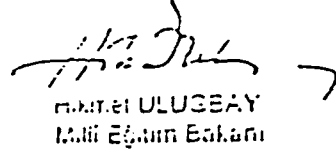 Hikmet ULUĞBAY
Milli Eğitim Bakanı